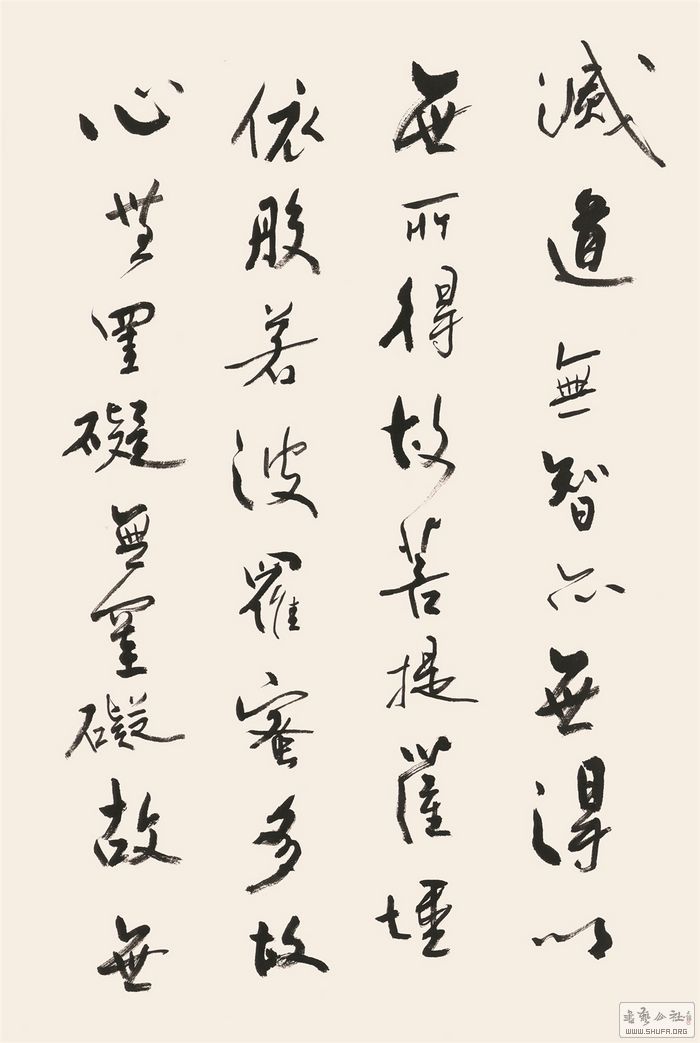 滅道無智亦無得以
無所得故菩提薩埵
依般若波羅蜜多故
心無罣礙無罣礙故無
書藝公社
WWW.SHUFA.ORG